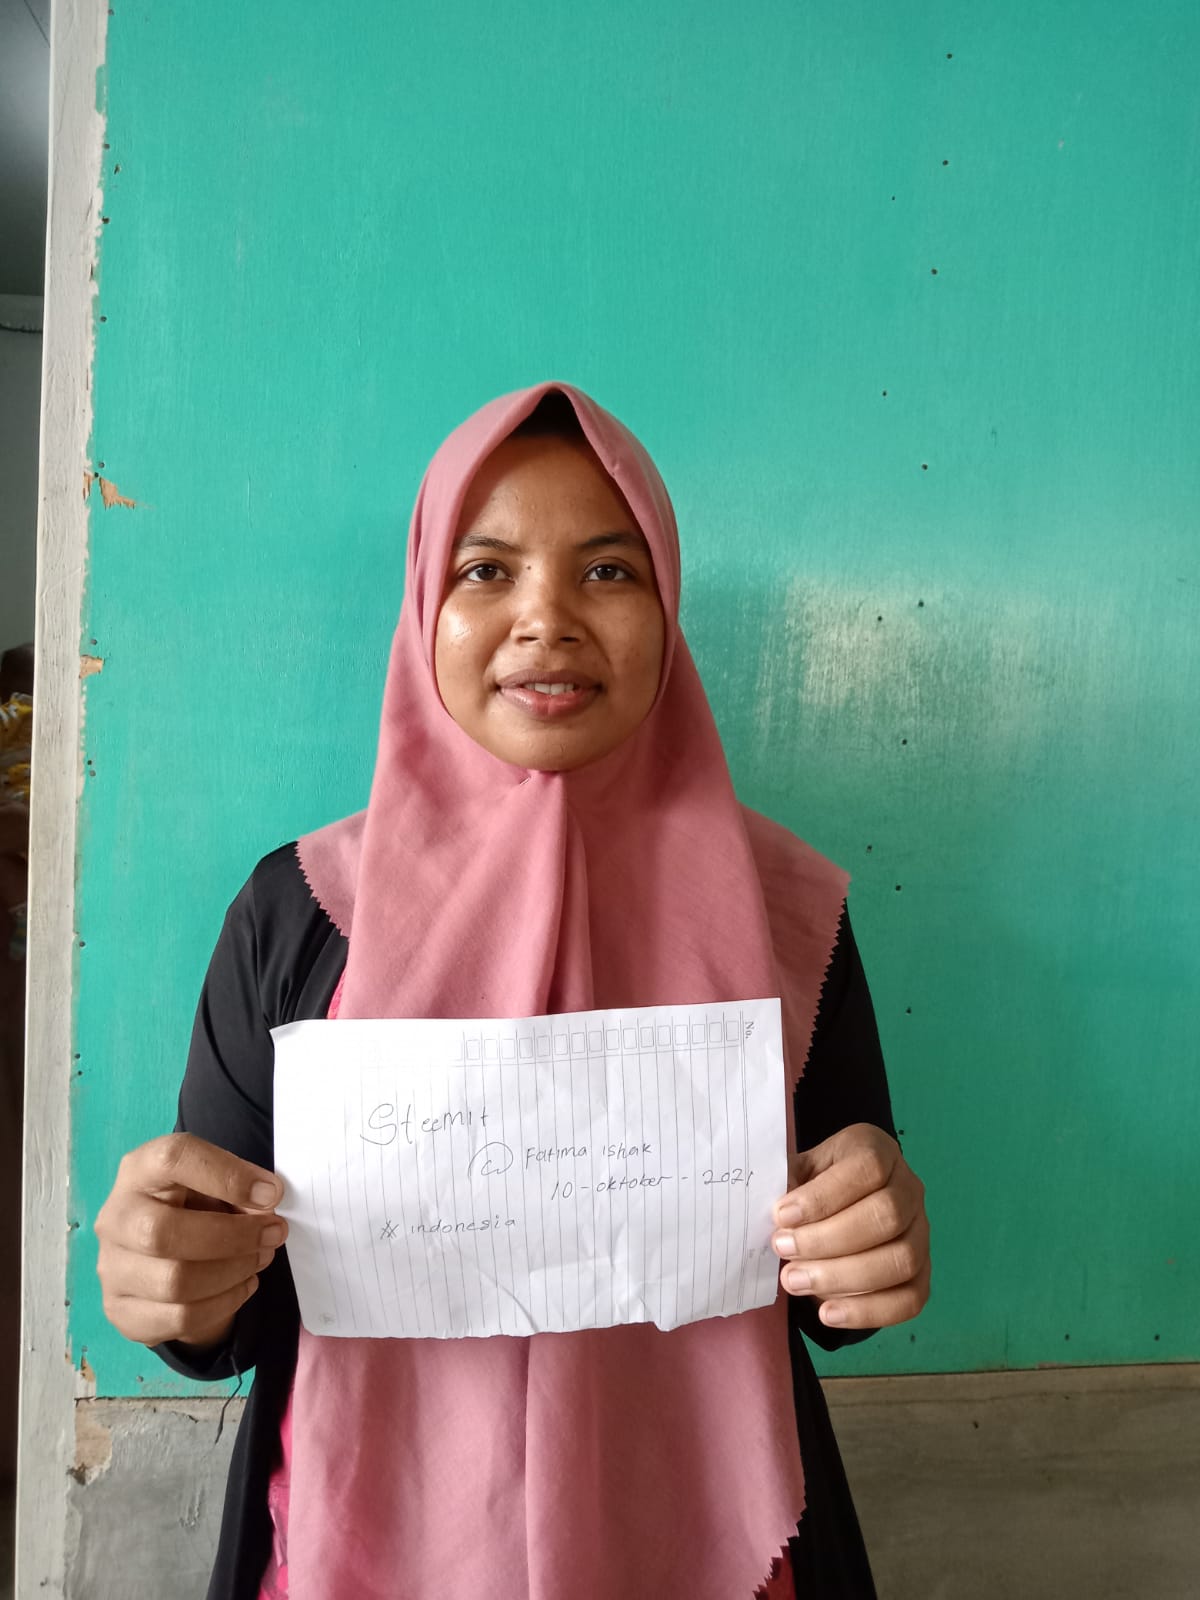 Steemit
@ Fatima ishak
10 - oktober - 2021
# indonesia
No.